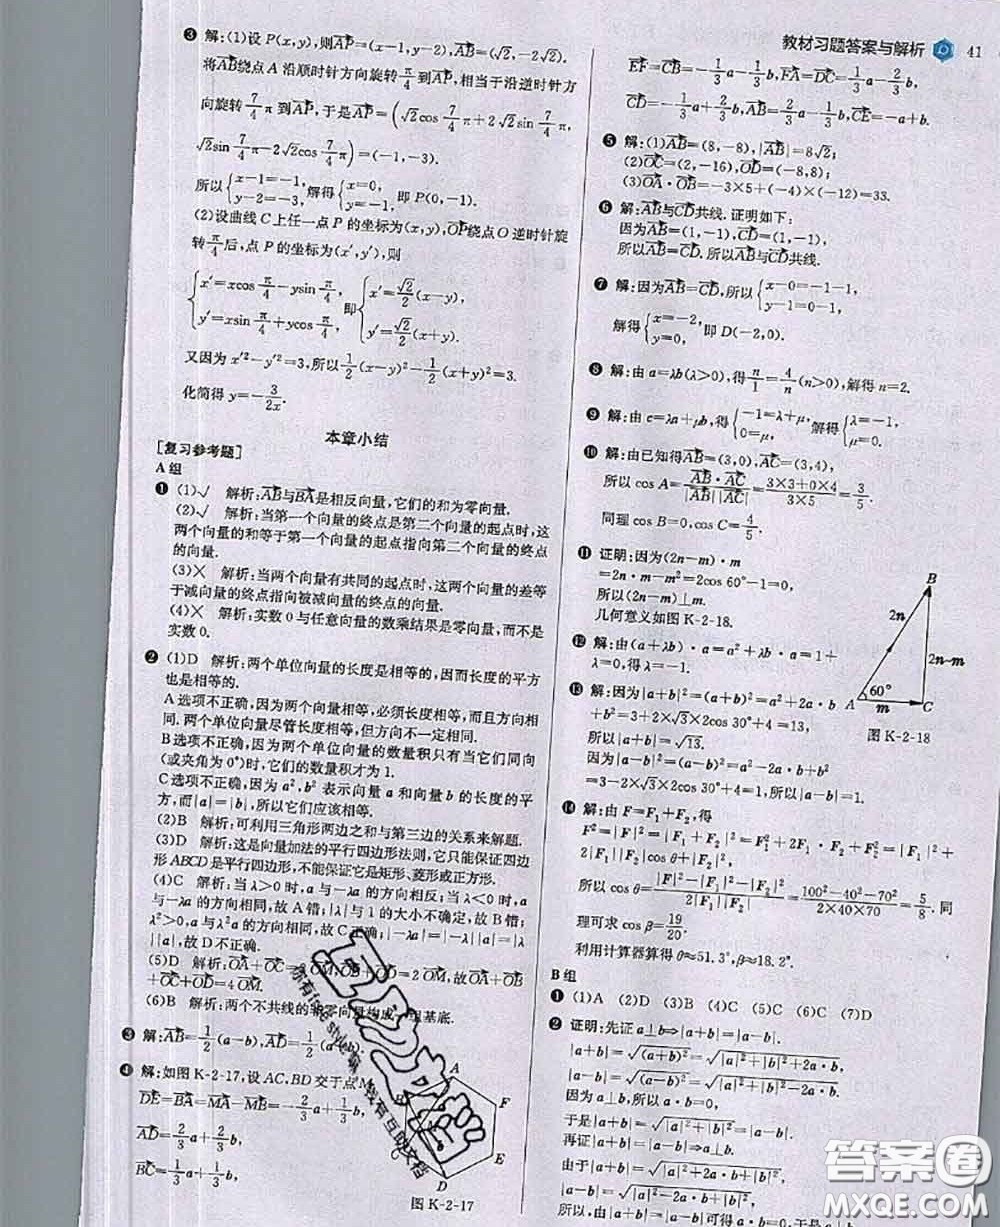 教材习题答案与解析 41
❸ 解:(1)设 P(x,y),则AP=(x-1,y-2),AB=(√2,-2√2).
将AB绕点 A 沿顺时针方向旋转π/4到AP,相当于沿逆时针方
向旋转7/4π到AP,于是AP=(√2cos 7/4π+2√2sin 7/4π,
√2sin 7/4π-2√2cos 7/4π)=(-1,-3).
所以{x-1=-1, y-2=-3, 解得{x=0, y=-1, 即 P(0,-1).
(2)设曲线 C 上任一点 P 的坐标为(x,y),OP绕点 O 逆时针旋
转π/4后,点 P 的坐标为(x′,y′),则
{x′=xcos π/4-ysin π/4, y′=xsin π/4+ycos π/4, 即{x′=√2/2(x-y), y′=√2/2(x+y),
又因为 x′²-y′²=3,所以1/2(x-y)²-1/2(x+y)²=3.
化简得 y=-3/2x.
本章小结
[复习参考题]
A 组
❶ (1)√ 解析:AB与BA是相反向量,它们的和为零向量.
(2)√ 解析:当第一个向量的终点是第二个向量的起点时,这
两个向量的和等于第一个向量的起点指向第二个向量的终点
的向量.
(3)× 解析:当两个向量有共同的起点时,这两个向量的差等
于减向量的终点指向被减向量的终点的向量.
(4)× 解析:实数 0 与任意向量的数乘结果是零向量,而不是
实数 0.
❷ (1)D 解析:两个单位向量的长度是相等的,因而长度的平方
也是相等的.
A 选项不正确,因为两个向量相等,必须长度相等,而且方向相
同.两个单位向量尽管长度相等,但方向不一定相同.
B 选项不正确,因为两个单位向量的数量积只有当它们同向
(或夹角为 0°)时,它们的数量积才为 1.
C 选项不正确,因为 a²,b² 表示向量 a 和向量 b 的长度的平
方,而|a|=|b|,所以它们应该相等.
(2)B 解析:可利用三角形两边之和与第三边的关系来解题.
(3)D 解析:这是向量加法的平行四边形法则,它只能保证四边
形 ABCD 是平行四边形,不能保证它是矩形、菱形或正方形.
(4)C 解析:当 λ>0 时,a 与-λa 的方向相反,当 λ<0 时,a
与-λa 的方向相同,故 A 错;|λ|与 1 的大小不确定,故 B 错;
λ²>0,a 与 λ²a 的方向相同,故 C 正确;|-λa|=|-λ||a|=|λ
||a|,故 D 不正确.
(5)D 解析:OA+OC=2OM,OB+OD=2OM,故OA+OB
+OC+OD=4OM.
(6)B 解析:两个不共线的非零向量构成一组基底.
❸ 解:AB=1/2(a-b),AD=1/2(a+b).
❹ 解:如图 K-2-17,设 AC,BD 交于点 M,
DE=BA=MA-MB=-2/3a+1/3b,
AD=2/3a+2/3b,
BC=1/3a+1/3b,
A
F
E
D
C
B
图 K-2-17
EF=CB=-1/3a-1/3b,FA=DC=1/3a-2/3b,
CD=-1/3a+2/3b,AB=2/3a-1/3b,CE=-a+b.
❺ 解:(1)AB=(8,-8),|AB|=8√2;
(2)OC=(2,-16),OD=(-8,8);
(3)OA·OB=-3×5+(-4)×(-12)=33.
❻ 解:AB与CD共线.证明如下:
因为AB=(1,-1),CD=(1,-1),
所以AB=CD.所以AB与CD共线.
❼ 解:因为AB=CD,所以{x-0=-1-1, y-1=0-1,
解得{x=-2, y=0, 即 D(-2,0).
❽ 解:由 a=λb(λ>0),得n/1=4/n(n>0),解得 n=2.
❾ 解:由 c=λa+μb,得{-1=λ+μ, 0=μ, 解得{λ=-1, μ=0.
❿ 解:由已知得AB=(3,0),AC=(3,4),
所以 cos A=AB·AC/|AB||AC|=3×3+0×4/3×5=3/5.
同理 cos B=0,cos C=4/5.
⓫ 证明:因为(2n-m)·m
=2n·m-m²=2cos 60°-1=0,
所以(2n-m)⊥m.
几何意义如图 K-2-18.
B
2n
2n-m
60°
A m C
图 K-2-18
⓬ 解:由(a+λb)·a=a²+λb·a=1+
λ=0,得 λ=-1.
⓭ 解:因为|a+b|²=(a+b)²=a²+2a·b
+b²=3+2×√3×2cos 30°+4=13,
所以|a+b|=√13.
因为|a-b|²=(a-b)²=a²-2a·b+b²
=3-2×√3×2cos 30°+4=1,所以|a-b|=1.
⓮ 解:由 F=F₁+F₂,得
F²=|F|²=|F₁+F₂|²=F₁²+2F₁·F₂+F₂²=|F₁|²+
2|F₁||F₂|cos θ+|F₂|²,
所以 cos θ=|F|²-|F₁|²-|F₂|²/2|F₁||F₂|=100²-40²-70²/2×40×70=5/8.同
理可求 cos β=19/20.
利用计算器算得 θ≈51.3°,β≈18.2°.
B 组
❶ (1)A (2)D (3)B (4)C (5)C (6)C (7)D
❷ 证明:先证 a⊥b⇒|a+b|=|a-b|.
|a+b|=√(a+b)²=√|a|²+|b|²+2a·b,
|a-b|=√(a-b)²=√|a|²+|b|²-2a·b.
因为 a⊥b,所以 a·b=0.
于是|a+b|=√|a|²+|b|²=|a-b|.
再证|a+b|=|a-b|⇒a⊥b.
由于|a+b|=√|a|²+2a·b+|b|²,
|a-b|=√|a|²-2a·b+|b|²,
所以由|a+b|=|a-b|可得 a·b=0,于是 a⊥b
答案圈
MXQE.COM